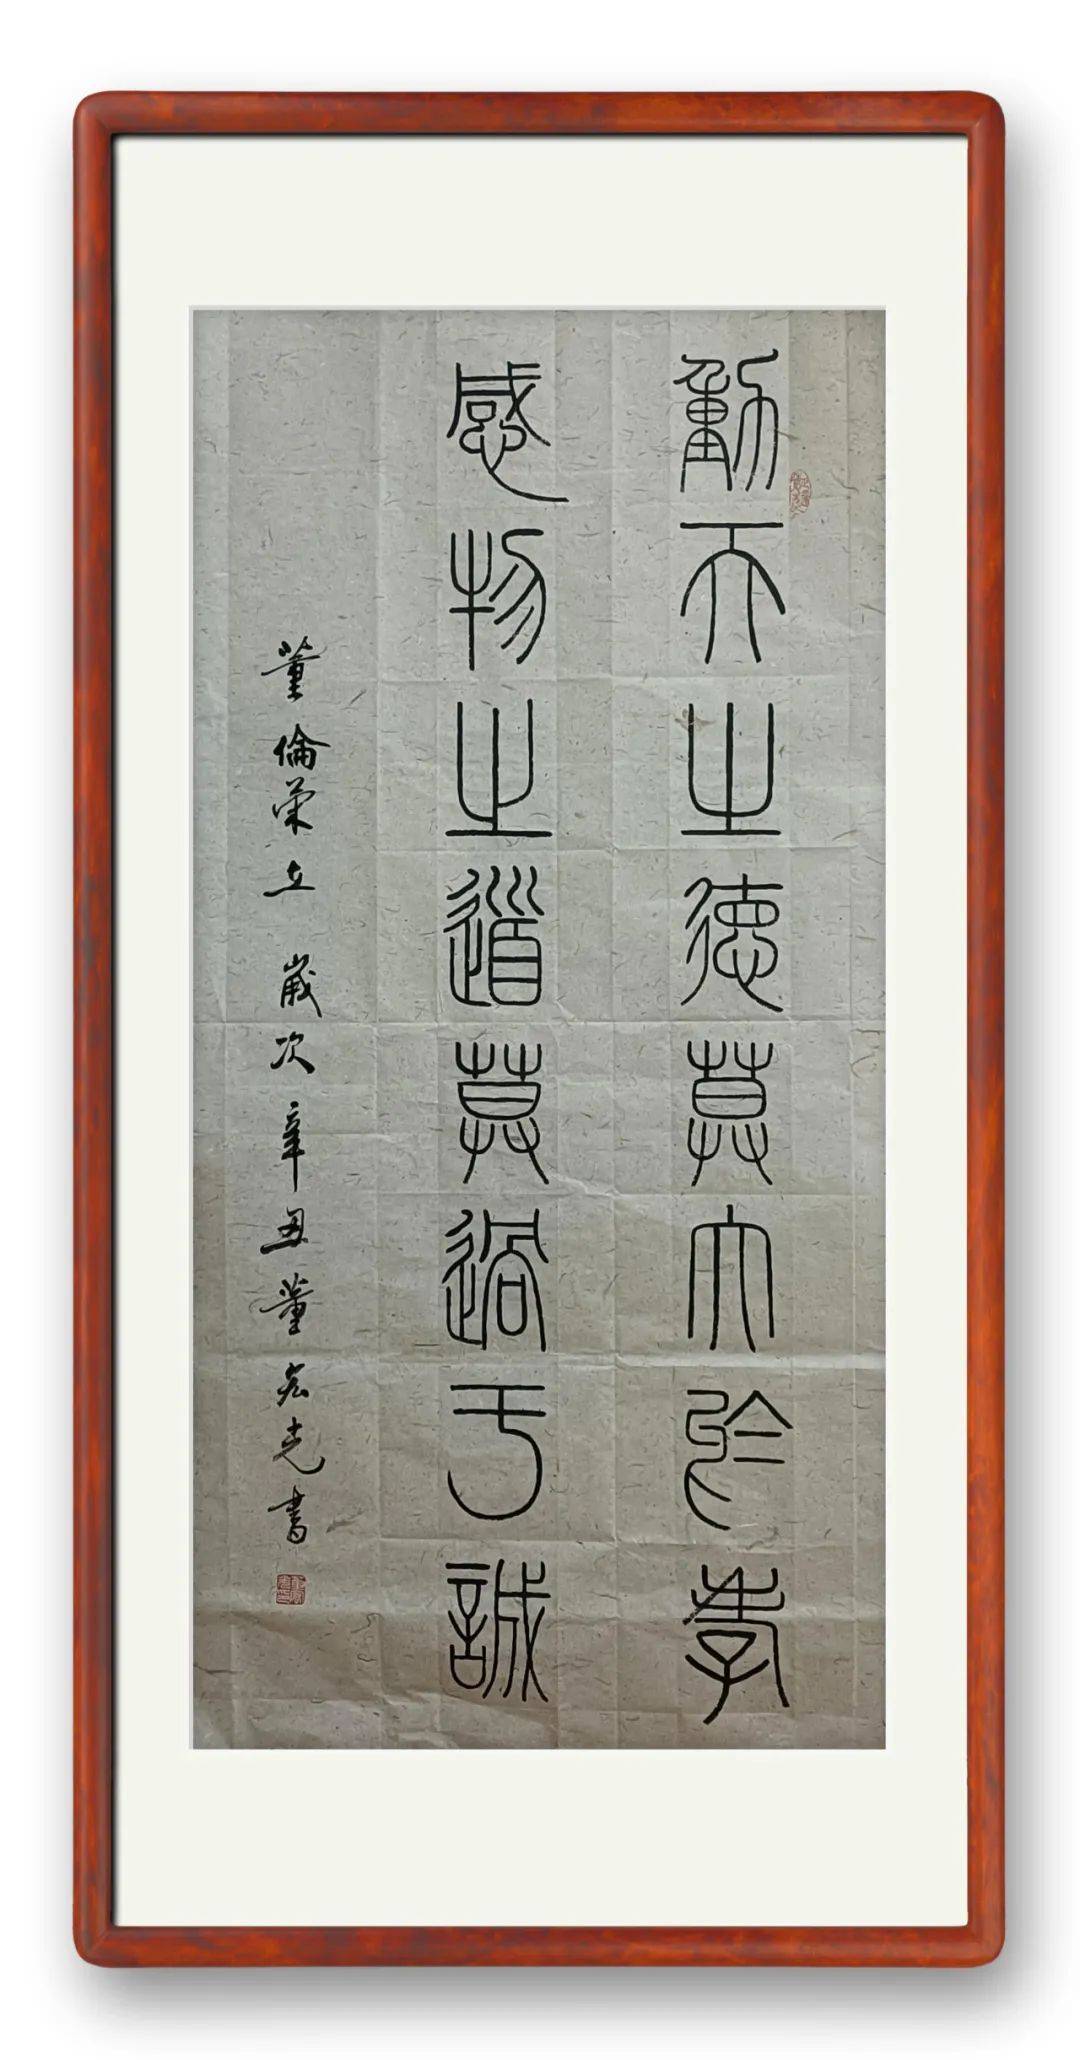 動天之德莫大於孝
感物之道莫過于誠
董倫榮立 歲次辛丑董宏光書